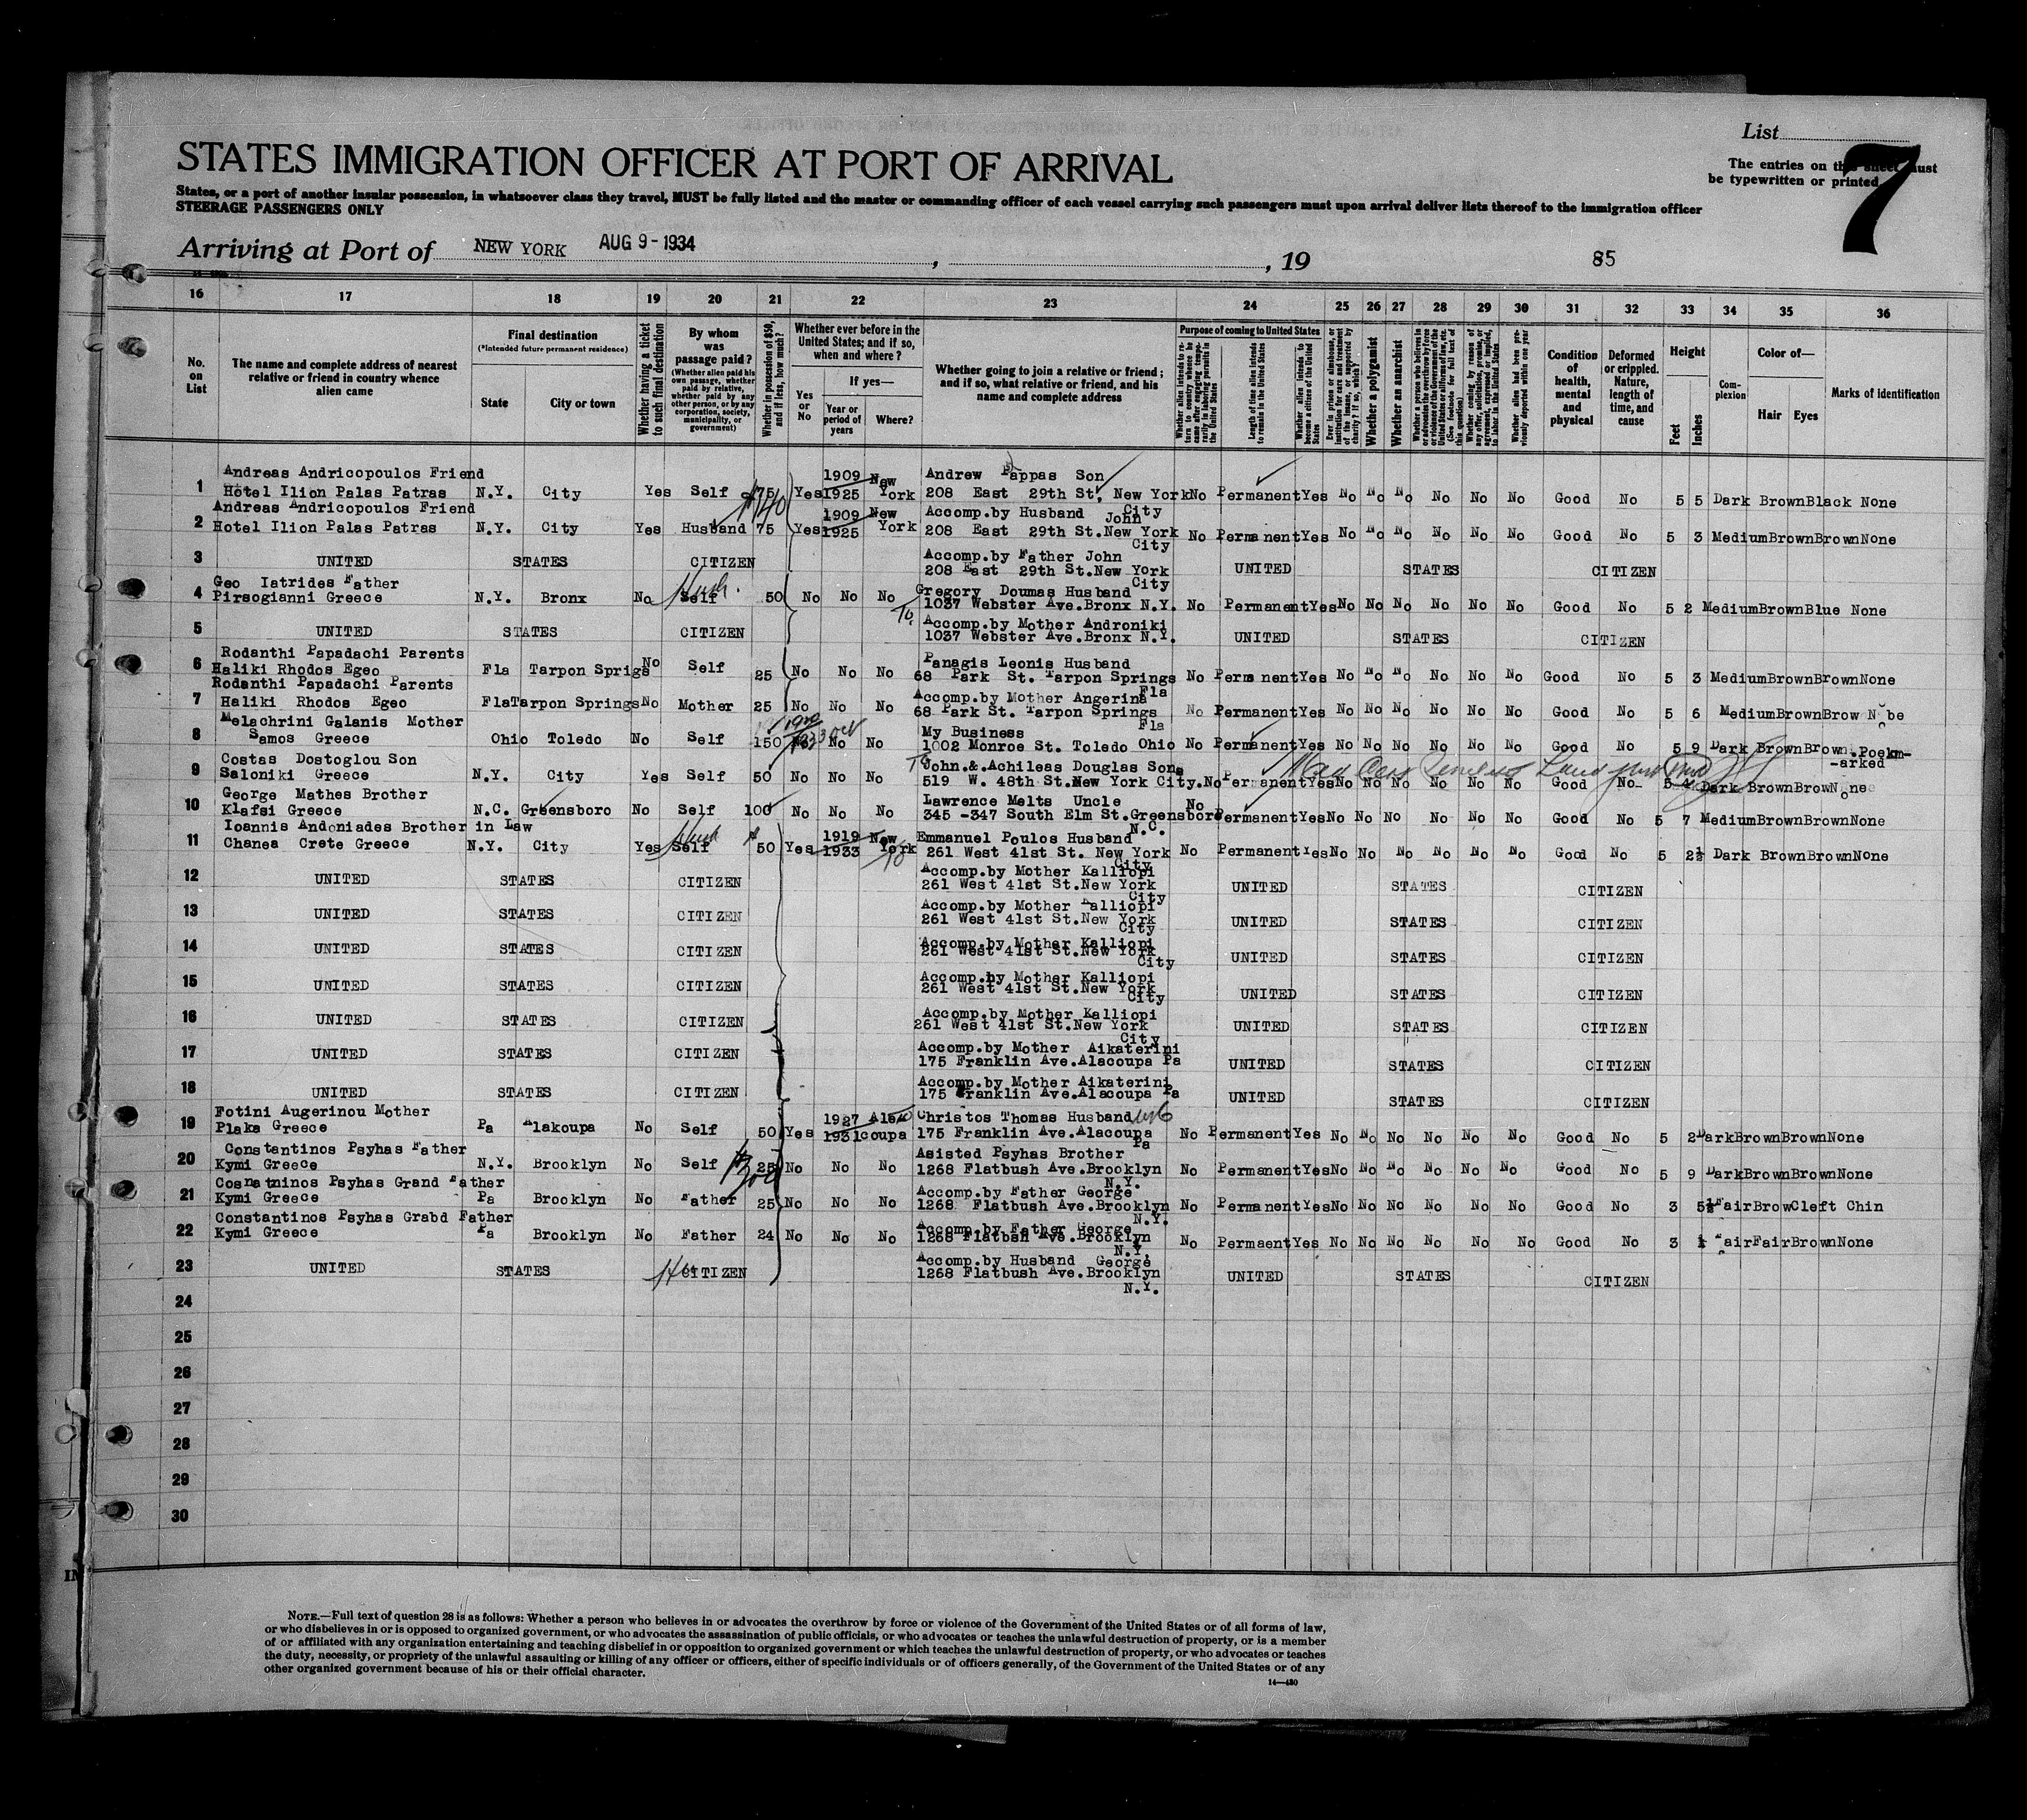 List
STATES IMMIGRATION OFFICER AT PORT OF ARRIVAL
7
The entries on this sheet must
be typewritten or printed
States, or a port of another insular possession, in whatsoever class they travel, MUST be fully listed and the master or commanding officer of each vessel carrying such passengers must upon arrival deliver lists thereof to the immigration officer
STEERAGE PASSENGERS ONLY
Arriving at Port of NEW YORK AUG 9 - 1934 , , 19
85
16 17 18 19 20 21 22 23 24 25 26 27 28 29 30 31 32 33 34 35 36
No. on List
The name and complete address of nearest relative or friend in country whence alien came
Final destination
(*Intended future permanent residence)
State
City or town
Whether having a ticket to such final destination
By whom was passage paid?
(Whether alien paid his own passage, whether paid by relative, whether paid by any other person, or by any corporation, society, municipality, or government)
Whether in possession of $50, and if less, how much?
Whether ever before in the United States; and if so, when and where?
Yes or No
If yes—
Year or period of years
Where?
Whether going to join a relative or friend; and if so, what relative or friend, and his name and complete address
Purpose of coming to United States
Whether alien intends to return to country whence he came after engaging temporarily in laboring pursuits in the United States
Length of time alien intends to remain in the United States
Whether alien intends to become a citizen of the United States
Ever in prison or almshouse, or institution for care and treatment of the insane, or supported by charity? If so, which?
Whether a polygamist
Whether an anarchist
Whether a person who believes in or advocates the overthrow by force or violence of the Government of the United States or all forms of law, etc. (See footnote for full text of this question)
Whether coming by reason of any offer, solicitation, promise, or agreement, expressed or implied, to labor in the United States
Whether alien had been previously deported within one year
Condition of health, mental and physical
Deformed or crippled. Nature, length of time, and cause
Height
Feet
Inches
Complexion
Color of—
Hair
Eyes
Marks of identification
1 Andreas Andricopoulos Friend 1909 New Andrew Pappas Son
Hotel Ilion Palas Patras N.Y. City Yes Self 75 Yes 1925 York 208 East 29th St, New York No Permanent Yes No No No No No No Good No 5 5 Dark Brown Black None
City
2 Andreas Andricopoulos Friend 1909 New Accomp.by Husband John
Hotel Ilion Palas Patras N.Y. City Yes Husband 75 Yes 1925 York 208 East 29th St.New York No Permanent Yes No No No No No No Good No 5 3 Medium Brown Brown None
City
3 UNITED STATES CITIZEN Accomp.by Father John
208 East 29th St.New York UNITED STATES CITIZEN
City
4 Geo Iatrides Father Gregory Doumas Husband
Pirsogianni Greece N.Y. Bronx No Self 50 No No No 1037 Webster Ave.Bronx N.Y. No Permanent Yes No No No No No No Good No 5 2 Medium Brown Blue None
5 UNITED STATES CITIZEN Accomp.by Mother Androniki
1037 Webster Ave.Bronx N.Y. UNITED STATES CITIZEN
6 Rodanthi Papadachi Parents Panagis Leonis Husband
Haliki Rhodos Egeo Fla Tarpon Sprigs No Self 25 No No No 68 Park St. Tarpon Springs No Permanent Yes No No No No No No Good No 5 3 Medium Brown Brown None
Fla
7 Rodanthi Papadachi Parents Accomp.by Mother Angerina
Haliki Rhodos Egeo Fla Tarpon Springs No Mother 25 No No No 68 Park St. Tarpon Springs No Permanent Yes No No No No No No Good No 5 6 Medium Brown Brow
Fla
8 Melachrini Galanis Mother My Business
Samos Greece Ohio Toledo No Self 150 No No 1002 Monroe St. Toledo Ohio No Permanent Yes No No No No No No Good No 5 9 Dark Brown Brown
-arked
9 Costas Dostoglou Son John.&.Achileas Douglas Sons
Saloniki Greece N.Y. City Yes Self 50 No No No 519 W. 48th St.New York City. No Permanent Yes No No No No No No Good No 5 Dark Brown Brow None
10 George Mathes Brother Lawrence Melts Uncle
Klafsi Greece N.C. Greensboro No Self 100 No No No 345 -347 South Elm St.Greensboro No Permanent Yes No No No No No No Good No 5 7 Medium Brown Brown None
N.C.
11 Ioannis Andoniades Brother in Law 1919 New Emmanuel Poulos Husband
Chanea Crete Greece N.Y. City Yes Self 50 Yes 1933 York 261 West 41st St. New York No Permanent Yes No No No No No No Good No 5 2½ Dark Brown Brown None
City
12 UNITED STATES CITIZEN Accomp.by Mother Kalliopi
261 West 41st St.New York UNITED STATES CITIZEN
City
13 UNITED STATES CITIZEN Accomp.by Mother Kalliopi
261 West 41st St.New York UNITED STATES CITIZEN
City
14 UNITED STATES CITIZEN Accomp.by Mother Kalliopi
261 West 41st St.New York UNITED STATES CITIZEN
City
15 UNITED STATES CITIZEN Accomp.by Mother Kalliopi
261 West 41st St.New York UNITED STATES CITIZEN
City
16 UNITED STATES CITIZEN Accomp.by Mother Kalliopi
261 West 41st St.New York UNITED STATES CITIZEN
City
17 UNITED STATES CITIZEN Accomp.by Mother Aikaterini
175 Franklin Ave.Alacoupa Pa UNITED STATES CITIZEN
18 UNITED STATES CITIZEN Accomp.by Mother Aikaterini
175 Franklin Ave.Alacoupa Pa UNITED STATES CITIZEN
19 Fotini Augerinou Mother 1927 Christos Thomas Husband
Plaka Greece Pa Alakoupa No Self 50 Yes 1931 coupa 175 Franklin Ave.Alacoupa No Permanent Yes No No No No No No Good No 5 2 Dark Brown Brown None
Pa
20 Constantinos Psyhas Father Asisted Psyhas Brother
Kymi Greece N.Y. Brooklyn No Self 25 No No No 1268 Flatbush Ave.Brooklyn No Permanent Yes No No No No No No Good No 5 9 Dark Brown Brown None
N.Y.
21 Cosnatninos Psyhas Grand Father Accomp.by Father George
Kymi Greece Pa Brooklyn No Father 25 No No No 1268 Flatbush Ave.Brooklyn No Permanent Yes No No No No No No Good No 3 5½ Fair Brow Cleft Chin
N.Y.
22 Constantinos Psyhas Grabd Father Accomp.by Father George
Kymi Greece Pa Brooklyn No Father 24 No No No 1268 Flatbsh Ave. Brooklyn No Permaent Yes No No No No No No Good No 3 Fair Fair Brown None
N.Y.
23 UNITED STATES CITIZEN Accomp.by Husband George
1268 Flatbush Ave.Brooklyn UNITED STATES CITIZEN
N.Y.
24
25
26
27
28
29
30
NOTE.—Full text of question 28 is as follows: Whether a person who believes in or advocates the overthrow by force or violence of the Government of the United States or of all forms of law,
or who disbelieves in or is opposed to organized government, or who advocates the assassination of public officials, or who advocates or teaches the unlawful destruction of property, or is a member
of or affiliated with any organization entertaining and teaching disbelief in or opposition to organized government or which teaches the unlawful destruction of property, or who advocates or teaches
the duty, necessity, or propriety of the unlawful assaulting or killing of any officer or officers, either of specific individuals or of officers generally, of the Government of the United States or of any
other organized government because of his or their official character.
14—480